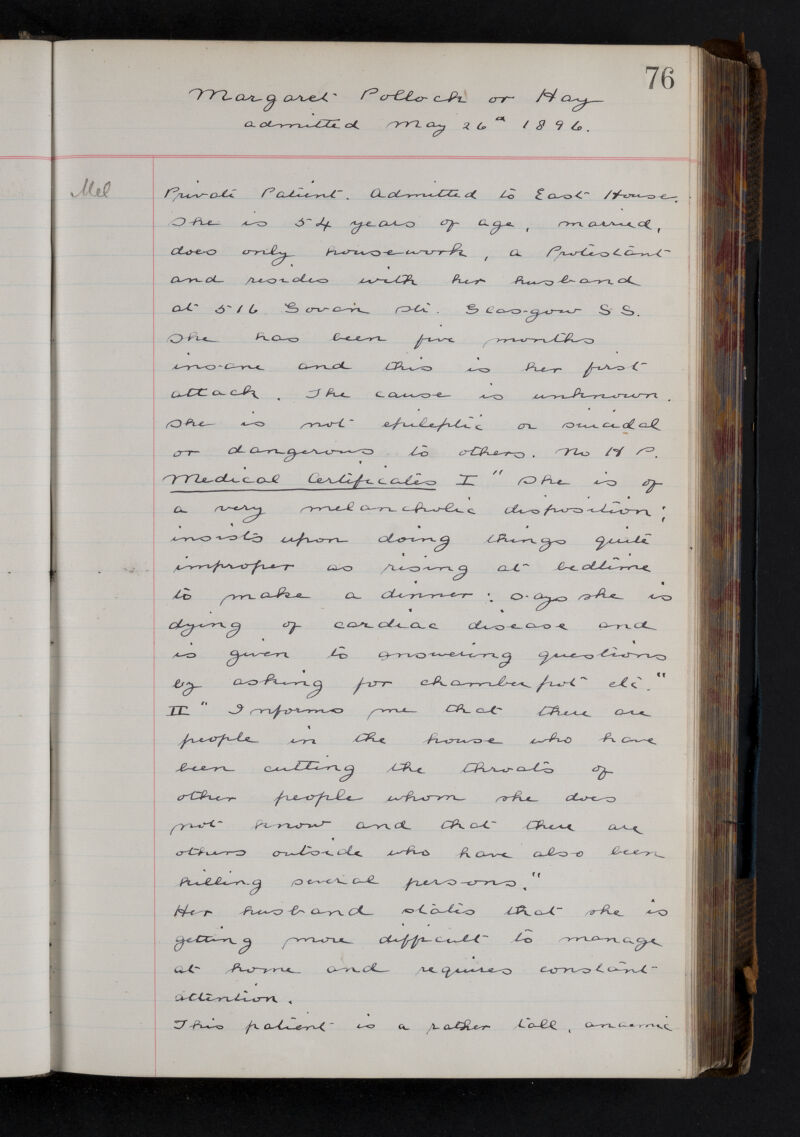 76
Margaret Pollock or Hay
admitted May 26th 1896.
Mel
Private Patient. Admitted to East House.
She is 54 years of age, married,
does only housework, a Protestant
and resides with her husband
at 516 Govan St. Glasgow S S.
She has been five months
insane and this is her first
attack. The cause is unknown.
She is not epileptic or suicidal
or dangerous to others. No H P.
Medical Certificates I " She is of
a very melancholic disposition;
insists upon doing things quite
improper as rising at bedtime
to make a dinner: says she is
dying of cardiac disease and
is given to answering questions
by asking for chamber pot etc."
II " Informs me that there are
people in the house who have
been cutting the throats of
other people whom she does
not know and that there are
others outside who have also been
killing several persons."
Her husband states that she is
getting more difficult to manage
at home and requires constant
attention.
This patient is a rather tall, anaemic